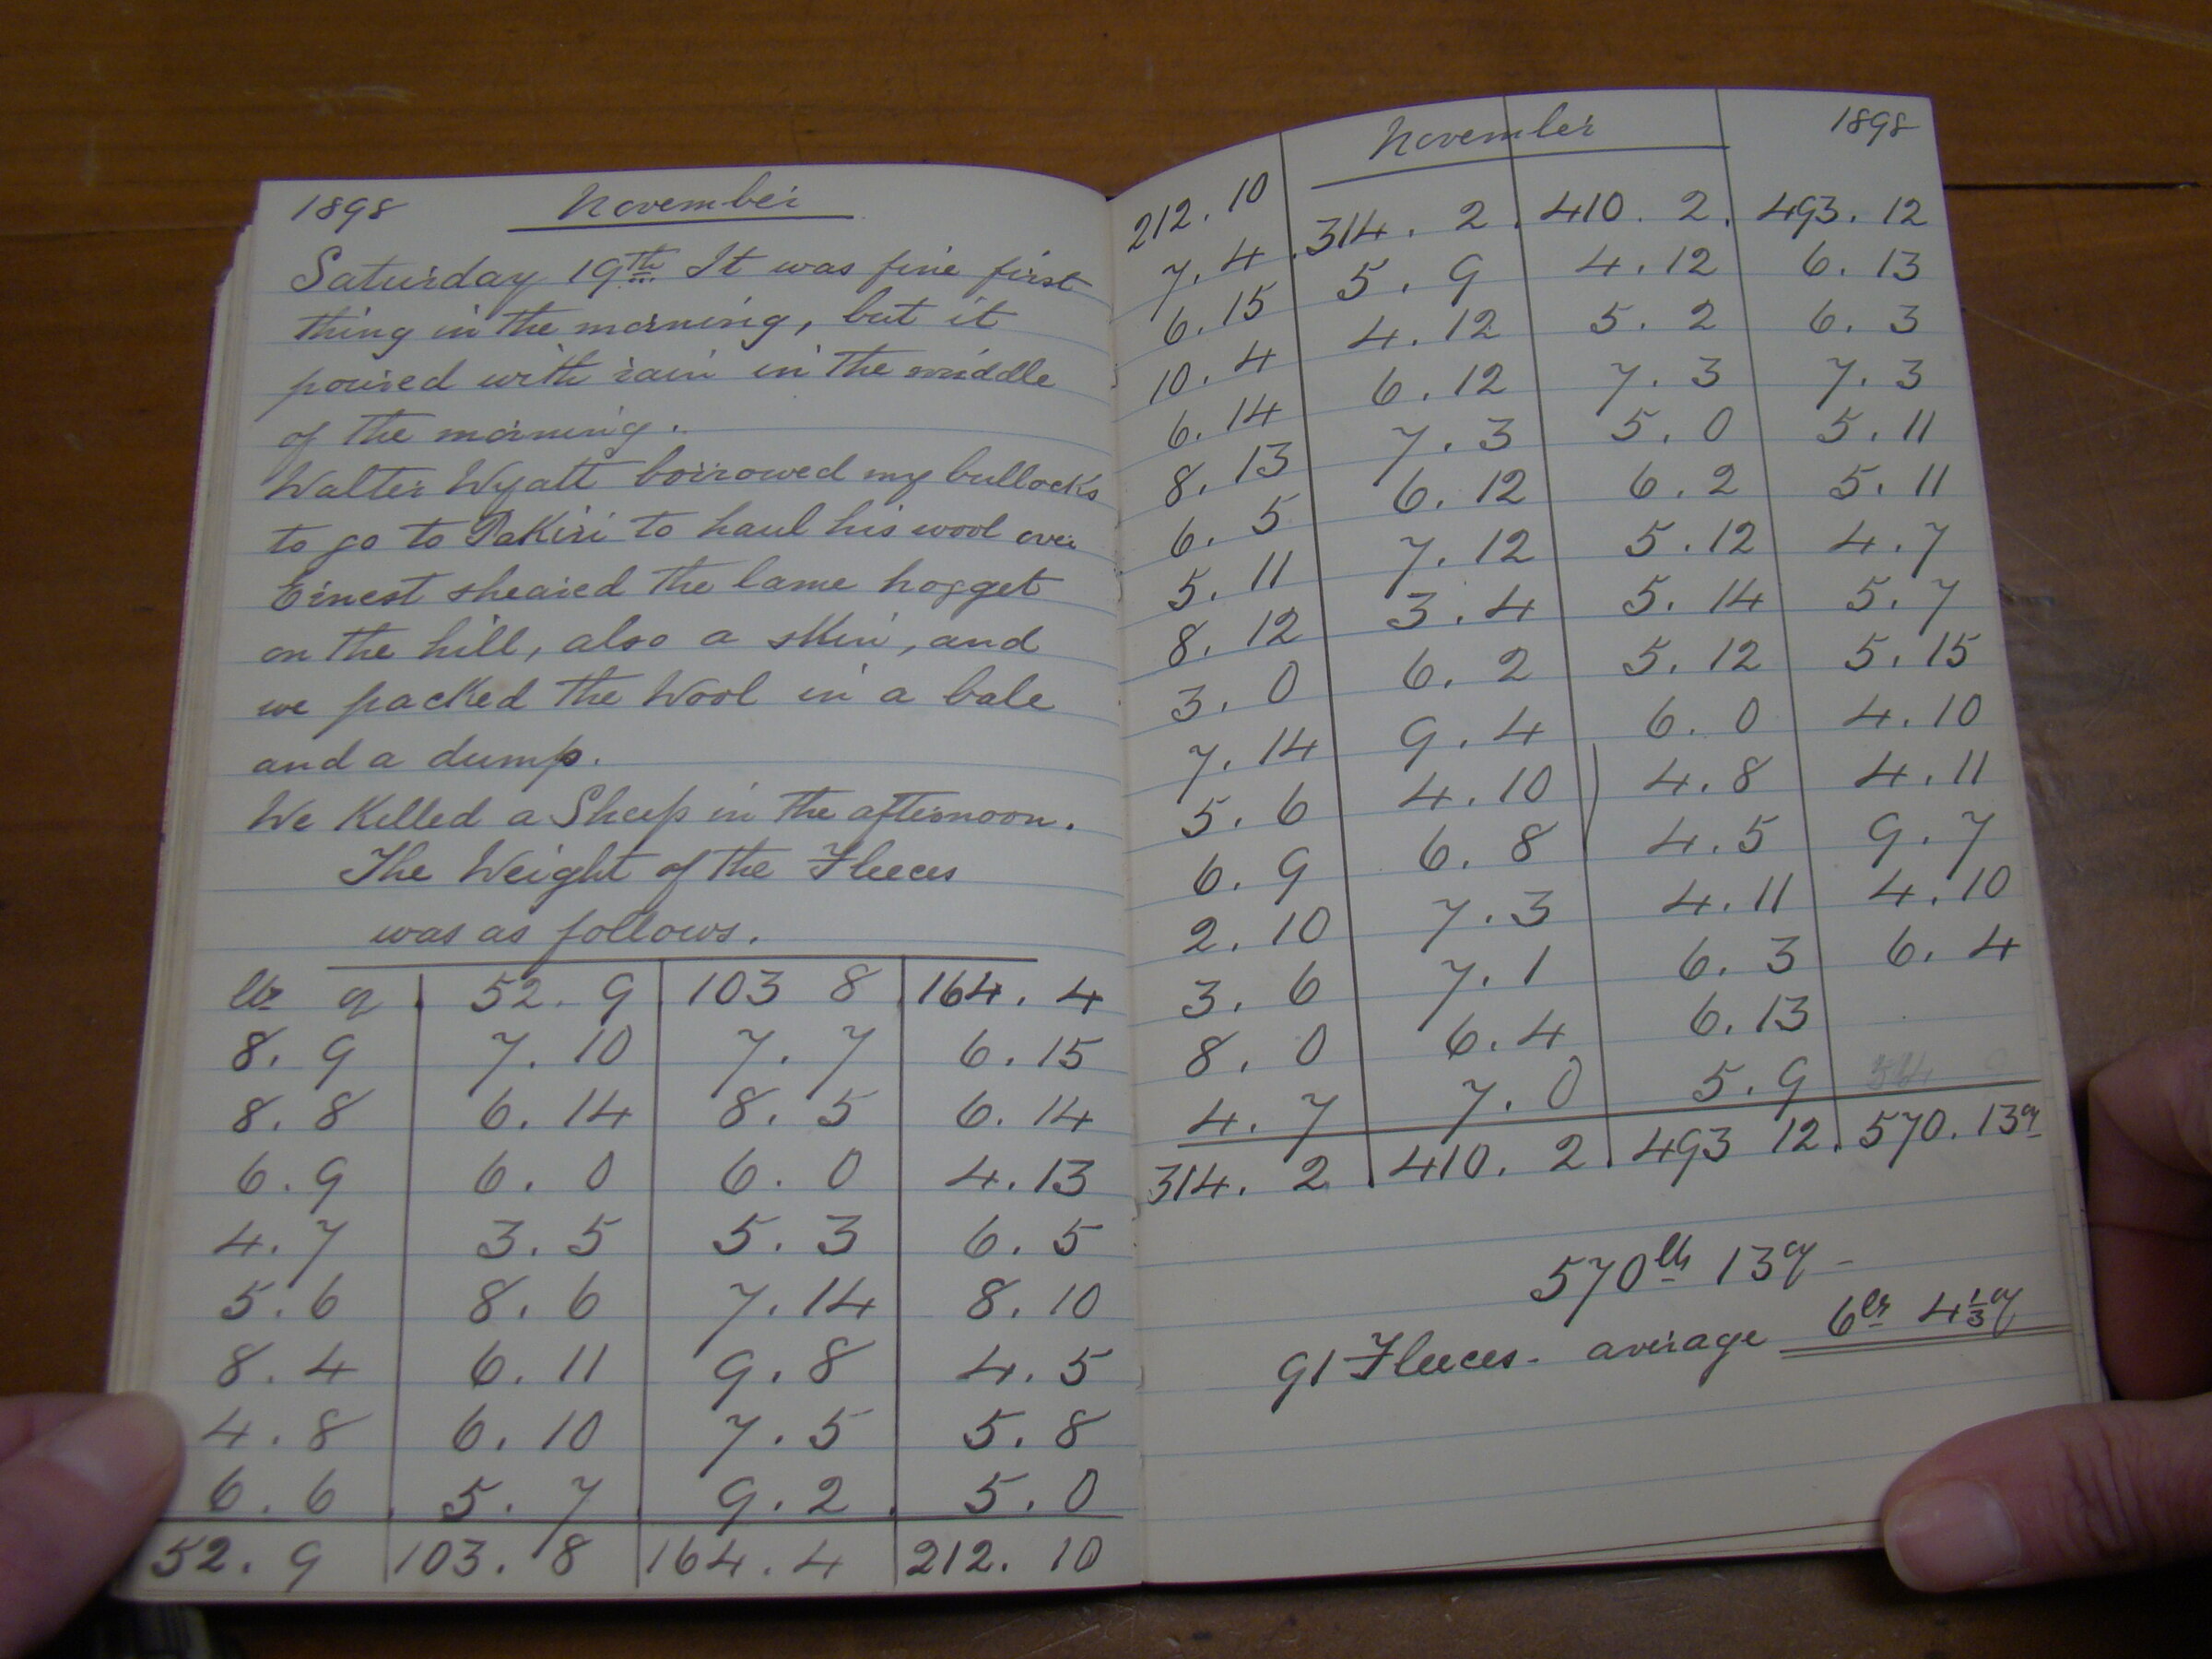 1898 November
Saturday 19th It was fine first
thing in the morning, but it
poured with rain in the middle
of the morning.
Walter Wyatt borrowed my bullocks
to go to Pakiri to haul his wool over
Ernest sheared the lame hogget
on the hill, also a skin, and
we packed the Wool in a bale
and a dump.
We Killed a Sheep in the afternoon.
The Weight of the Fleeces
was as follows.
lbs oz 52. 9 103 8 164. 4
8. 9 7. 10 7. 7 6. 15
8. 8 6. 14 8. 5 6. 14
6. 9 6. 0 6. 0 4. 13
4. 7 3. 5 5. 3 6. 5
5. 6 8. 6 7. 14 8. 10
8. 4 6. 11 9. 8 4. 5
4. 8 6. 10 7. 5 5. 8
6. 6 5. 7 9. 2 5. 0
52. 9 103. 8 164. 4 212. 10
November 1898
212. 10 314. 2 410. 2 493. 12
7. 4 5. 9 4. 12 6. 13
6. 15 4. 12 5. 2 6. 3
10. 4 6. 12 7. 3 7. 3
6. 14 7. 3 5. 0 5. 11
8. 13 6. 12 6. 2 5. 11
6. 5 7. 12 5. 12 4. 7
5. 11 3. 4 5. 14 5. 7
8. 12 6. 2 5. 12 5. 15
3. 0 9. 4 6. 0 4. 10
7. 14 4. 10 4. 8 4. 11
5. 6 6. 8 4. 5 9. 7
6. 9 7. 3 4. 11 4. 10
2. 10 7. 1 6. 3 6. 4
3. 6 6. 4 6. 13
8. 0 7. 0 5. 9
4. 7
314. 2 410. 2 493 12 570. 13oz
570lbs 13oz -
91 Fleeces - average 6lbs 4⅓oz